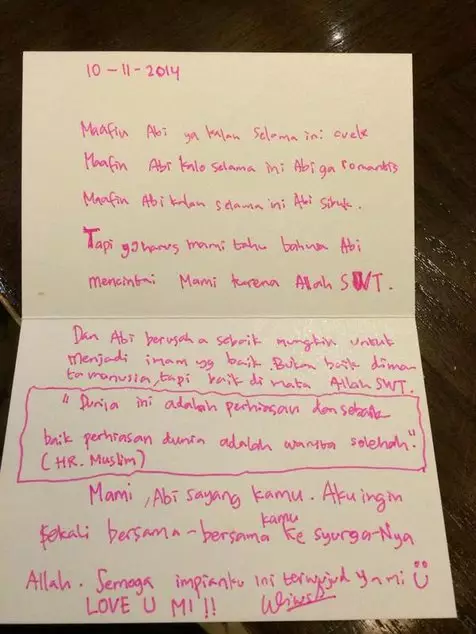 10-11-2014
Maafin Abi ya kalau selama ini cuek
Maafin Abi kalo selama ini Abi ga romantis
Maafin Abi kalau selama ini Abi sibuk.
Tapi yg harus mami tahu bahwa Abi
mencintai Mami karena Allah SWT.
Dan Abi berusaha sebaik mungkin untuk
menjadi imam yg baik. Bukan baik dima
ta manusia, tapi baik di mata Allah SWT.
"Dunia ini adalah perhiasan dan sebaik
baik perhiasan dunia adalah wanita solehah."
(HR. Muslim)
Mami, Abi sayang kamu. Aku ingin
sekali bersama-bersama kamu ke syurga-Nya
Allah. Semoga impianku ini terwujud ya mi
LOVE U MI!!